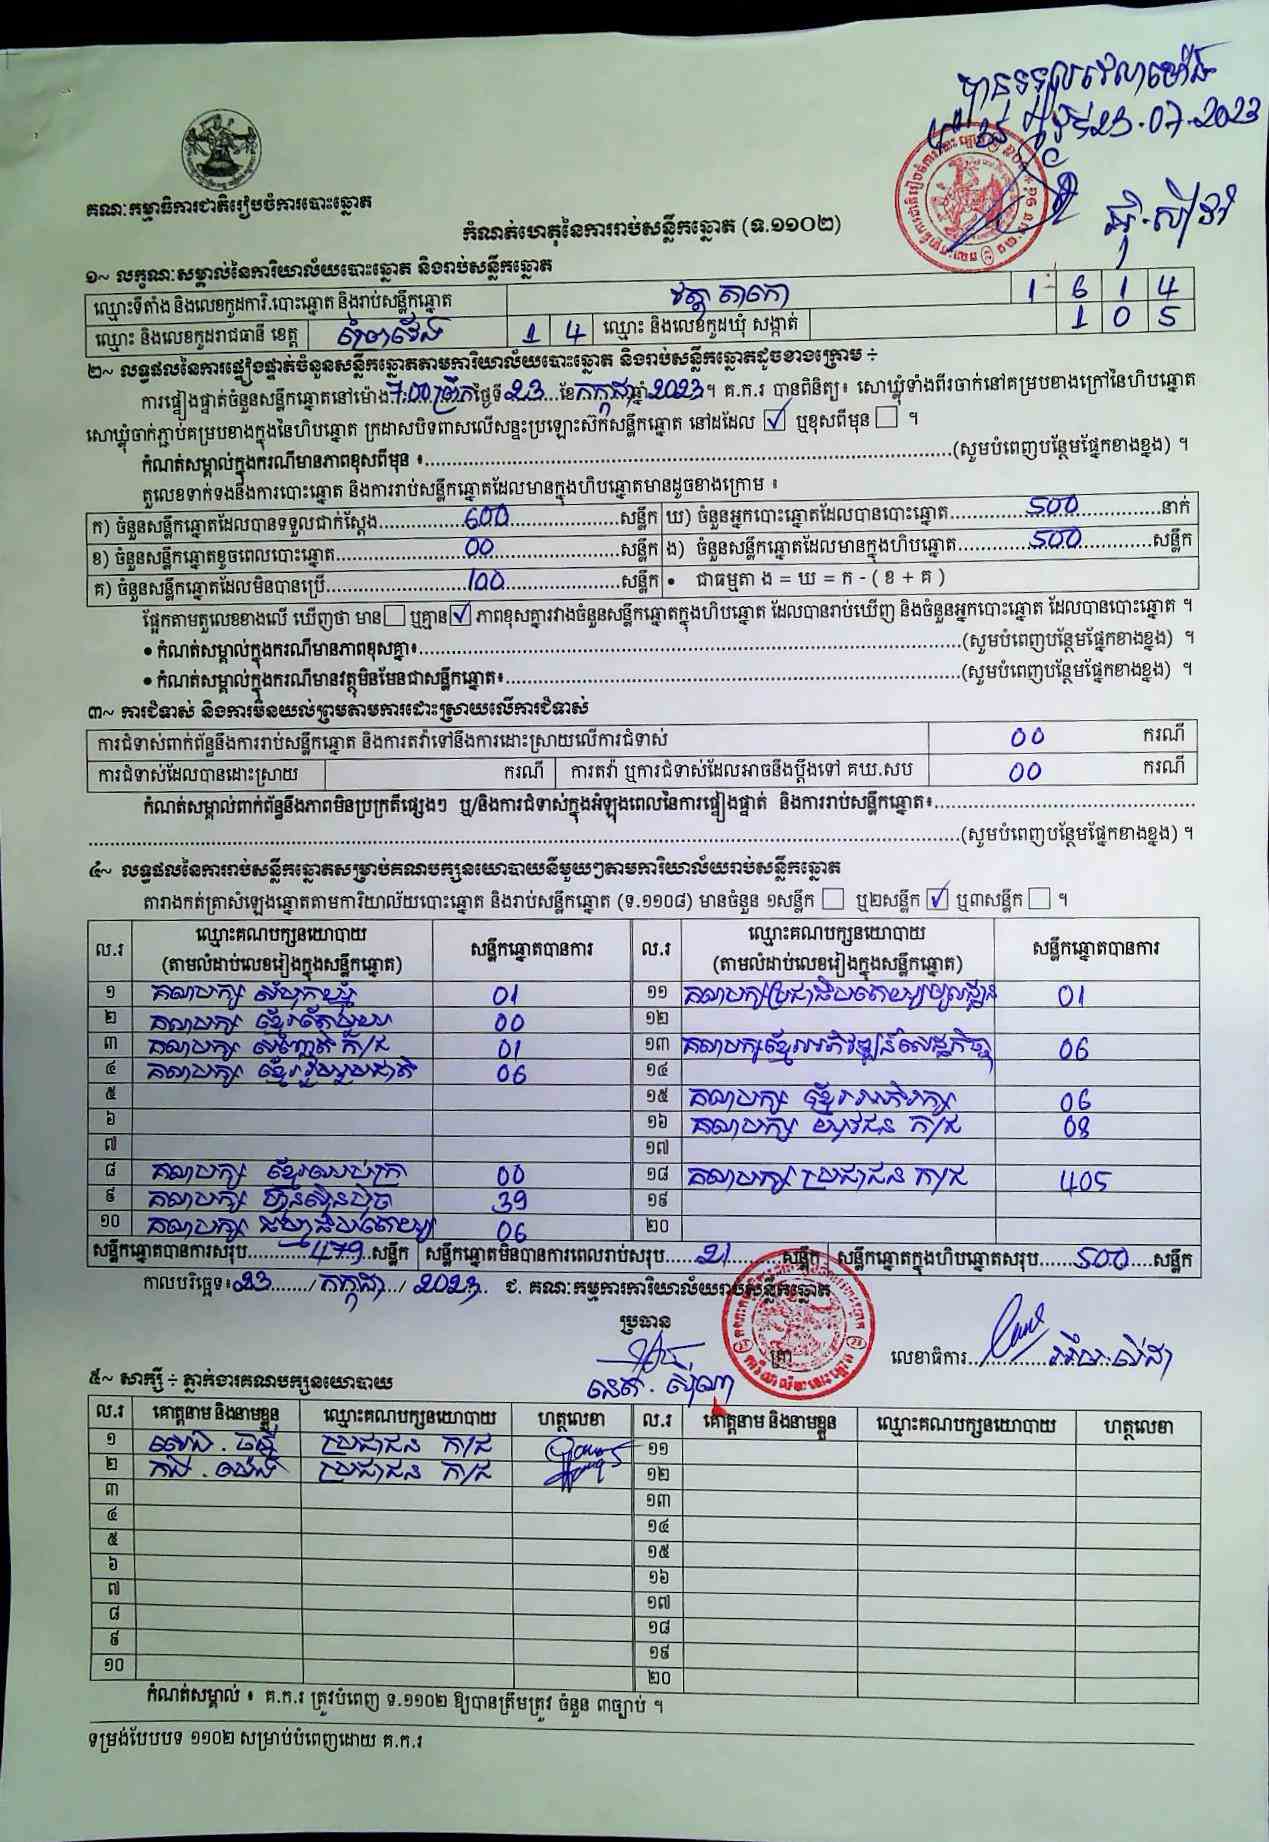 បានទទួលវេលាម៉ោង
ថ្ងៃទី23.07.2023
គណៈកម្មាធិការជាតិរៀបចំការបោះឆ្នោត
កំណត់ហេតុនៃការរាប់សន្លឹកឆ្នោត (ទ.១១០២)
១~ លក្ខណៈសម្គាល់នៃការិយាល័យបោះឆ្នោត និងរាប់សន្លឹកឆ្នោត
ឈ្មោះទីតាំង និងលេខកូដការិ.បោះឆ្នោត និងរាប់សន្លឹកឆ្នោត វត្តតាកោ 1 6 1 4
ឈ្មោះ និងលេខកូដរាជធានី ខេត្ត ព្រៃវែង 1 4 ឈ្មោះ និងលេខកូដឃុំ សង្កាត់ 1 0 5
២~ លទ្ធផលនៃការផ្ទៀងផ្ទាត់ចំនួនសន្លឹកឆ្នោតតាមការិយាល័យបោះឆ្នោត និងរាប់សន្លឹកឆ្នោតដូចខាងក្រោម ÷
ការផ្ទៀងផ្ទាត់ចំនួនសន្លឹកឆ្នោតនៅម៉ោង 7:00 ព្រឹក ថ្ងៃទី 23 ខែ កក្កដា ឆ្នាំ 2023 ។ គ.ក.រ បានពិនិត្យ៖ សោឃ្លុំទាំងពីរចាក់នៅគម្របខាងក្រៅនៃហិបឆ្នោត
សោឃ្លុំចាក់ភ្ជាប់គម្របខាងក្នុងនៃហិបឆ្នោត ក្រដាសបិទពាសលើសន្ទះប្រឡោះស៊កសន្លឹកឆ្នោត នៅដដែល ☑ ឬខុសពីមុន ☐ ។
កំណត់សម្គាល់ក្នុងករណីមានភាពខុសពីមុន ៖........(សូមបំពេញបន្ថែមផ្នែកខាងខ្នង) ។
តួលេខទាក់ទងនឹងការបោះឆ្នោត និងការរាប់សន្លឹកឆ្នោតដែលមានក្នុងហិបឆ្នោតមានដូចខាងក្រោម ៖
ក) ចំនួនសន្លឹកឆ្នោតដែលបានទទួលជាក់ស្តែង........600........សន្លឹក ឃ) ចំនួនអ្នកបោះឆ្នោតដែលបានបោះឆ្នោត........500........នាក់
ខ) ចំនួនសន្លឹកឆ្នោតខូចពេលបោះឆ្នោត........00........សន្លឹក ង) ចំនួនសន្លឹកឆ្នោតដែលមានក្នុងហិបឆ្នោត........500........សន្លឹក
គ) ចំនួនសន្លឹកឆ្នោតដែលមិនបានប្រើ........100........សន្លឹក • ជាធម្មតា ង = ឃ = ក - ( ខ + គ )
ផ្អែកតាមតួលេខខាងលើ ឃើញថា មាន ☐ ឬគ្មាន ☑ ភាពខុសគ្នារវាងចំនួនសន្លឹកឆ្នោតក្នុងហិបឆ្នោត ដែលបានរាប់ឃើញ និងចំនួនអ្នកបោះឆ្នោត ដែលបានបោះឆ្នោត ។
• កំណត់សម្គាល់ក្នុងករណីមានភាពខុសគ្នា៖........(សូមបំពេញបន្ថែមផ្នែកខាងខ្នង) ។
• កំណត់សម្គាល់ក្នុងករណីមានវត្ថុមិនមែនជាសន្លឹកឆ្នោត៖........(សូមបំពេញបន្ថែមផ្នែកខាងខ្នង) ។
៣~ ការជំទាស់ និងការមិនយល់ព្រមតាមការដោះស្រាយលើការជំទាស់
ការជំទាស់ពាក់ព័ន្ធនឹងការរាប់សន្លឹកឆ្នោត និងការតវ៉ាទៅនឹងការដោះស្រាយលើការជំទាស់ 00 ករណី
ការជំទាស់ដែលបានដោះស្រាយ ករណី ការតវ៉ា ឬការជំទាស់ដែលអាចនឹងប្តឹងទៅ គឃ.សប 00 ករណី
កំណត់សម្គាល់ពាក់ព័ន្ធនឹងភាពមិនប្រក្រតីផ្សេងៗ ឬ/និងការជំទាស់ក្នុងអំឡុងពេលនៃការផ្ទៀងផ្ទាត់ និងការរាប់សន្លឹកឆ្នោត៖........
........(សូមបំពេញបន្ថែមផ្នែកខាងខ្នង) ។
៤~ លទ្ធផលនៃការរាប់សន្លឹកឆ្នោតសម្រាប់គណបក្សនយោបាយនីមួយៗតាមការិយាល័យរាប់សន្លឹកឆ្នោត
តារាងកត់ត្រាសំឡេងឆ្នោតតាមការិយាល័យបោះឆ្នោត និងរាប់សន្លឹកឆ្នោត (ទ.១១០៨) មានចំនួន ១សន្លឹក ☐ ឬ២សន្លឹក ☑ ឬ៣សន្លឹក ☐ ។
ល.រ ឈ្មោះគណបក្សនយោបាយ (តាមលំដាប់លេខរៀងក្នុងសន្លឹកឆ្នោត) សន្លឹកឆ្នោតបានការ ល.រ ឈ្មោះគណបក្សនយោបាយ (តាមលំដាប់លេខរៀងក្នុងសន្លឹកឆ្នោត) សន្លឹកឆ្នោតបានការ
១ គណបក្ស សំបុកឃ្មុំ 01 ១១ គណបក្សប្រជាធិបតេយ្យមូលដ្ឋាន 01
២ គណបក្ស ខ្មែរតែមួយ 00 ១២
៣ គណបក្ស សញ្ជាតិ ក/ជ 01 ១៣ គណបក្សខ្មែរអភិវឌ្ឍន៍សេដ្ឋកិច្ច 06
៤ គណបក្ស ខ្មែររួបរួមជាតិ 06 ១៤
៥ ១៥ គណបក្ស ខ្មែរអភិរក្ស 06
៦ ១៦ គណបក្ស យុវជន ក/ជ 08
៧ ១៧
៨ គណបក្ស ខ្មែរឈប់ក្រ 00 ១៨ គណបក្ស ប្រជាជន ក/ជ 405
៩ គណបក្ស ហ៊្វុនស៊ិនប៉ិច 39 ១៩
១០ គណបក្ស ធម្មាធិបតេយ្យ 06 ២០
សន្លឹកឆ្នោតបានការសរុប........479......សន្លឹក សន្លឹកឆ្នោតមិនបានការពេលរាប់សរុប......21......សន្លឹក សន្លឹកឆ្នោតក្នុងហិបឆ្នោតសរុប......500....សន្លឹក
កាលបរិច្ឆេទ៖ 23 / កក្កដា / 2023 ជ. គណៈកម្មការការិយាល័យរាប់សន្លឹកឆ្នោត
ប្រធាន
ត្រា
លេខាធិការ
៥~ សាក្សី ÷ ភ្នាក់ងារគណបក្សនយោបាយ
ល.រ គោត្តនាម និងនាមខ្លួន ឈ្មោះគណបក្សនយោបាយ ហត្ថលេខា ល.រ គោត្តនាម និងនាមខ្លួន ឈ្មោះគណបក្សនយោបាយ ហត្ថលេខា
១ ប្រជាជន ក/ជ ១១
២ ប្រជាជន ក/ជ ១២
៣ ១៣
៤ ១៤
៥ ១៥
៦ ១៦
៧ ១៧
៨ ១៨
៩ ១៩
១០ ២០
កំណត់សម្គាល់ ៖ គ.ក.រ ត្រូវបំពេញ ទ.១១០២ ឱ្យបានត្រឹមត្រូវ ចំនួន ៣ច្បាប់ ។
ទម្រង់បែបបទ ១១០២ សម្រាប់បំពេញដោយ គ.ក.រ